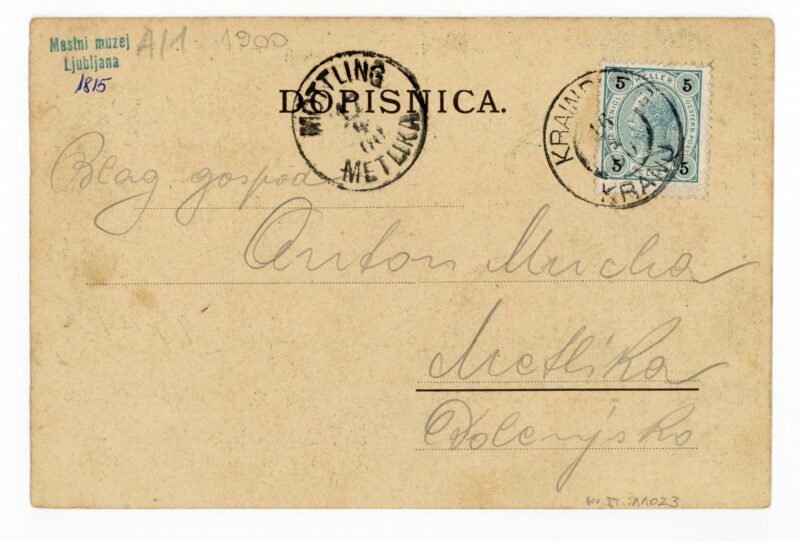 Mestni muzej
Ljubljana
1815
A/1 1900
DOPISNICA.
MÖTTLING
METLIKA
KRAINBURG
KRANJ
5 HELLER 5
5 5
Blag. gospod
Anton Mucha
Metlika
Dolenjsko
INV. ŠT. 11023